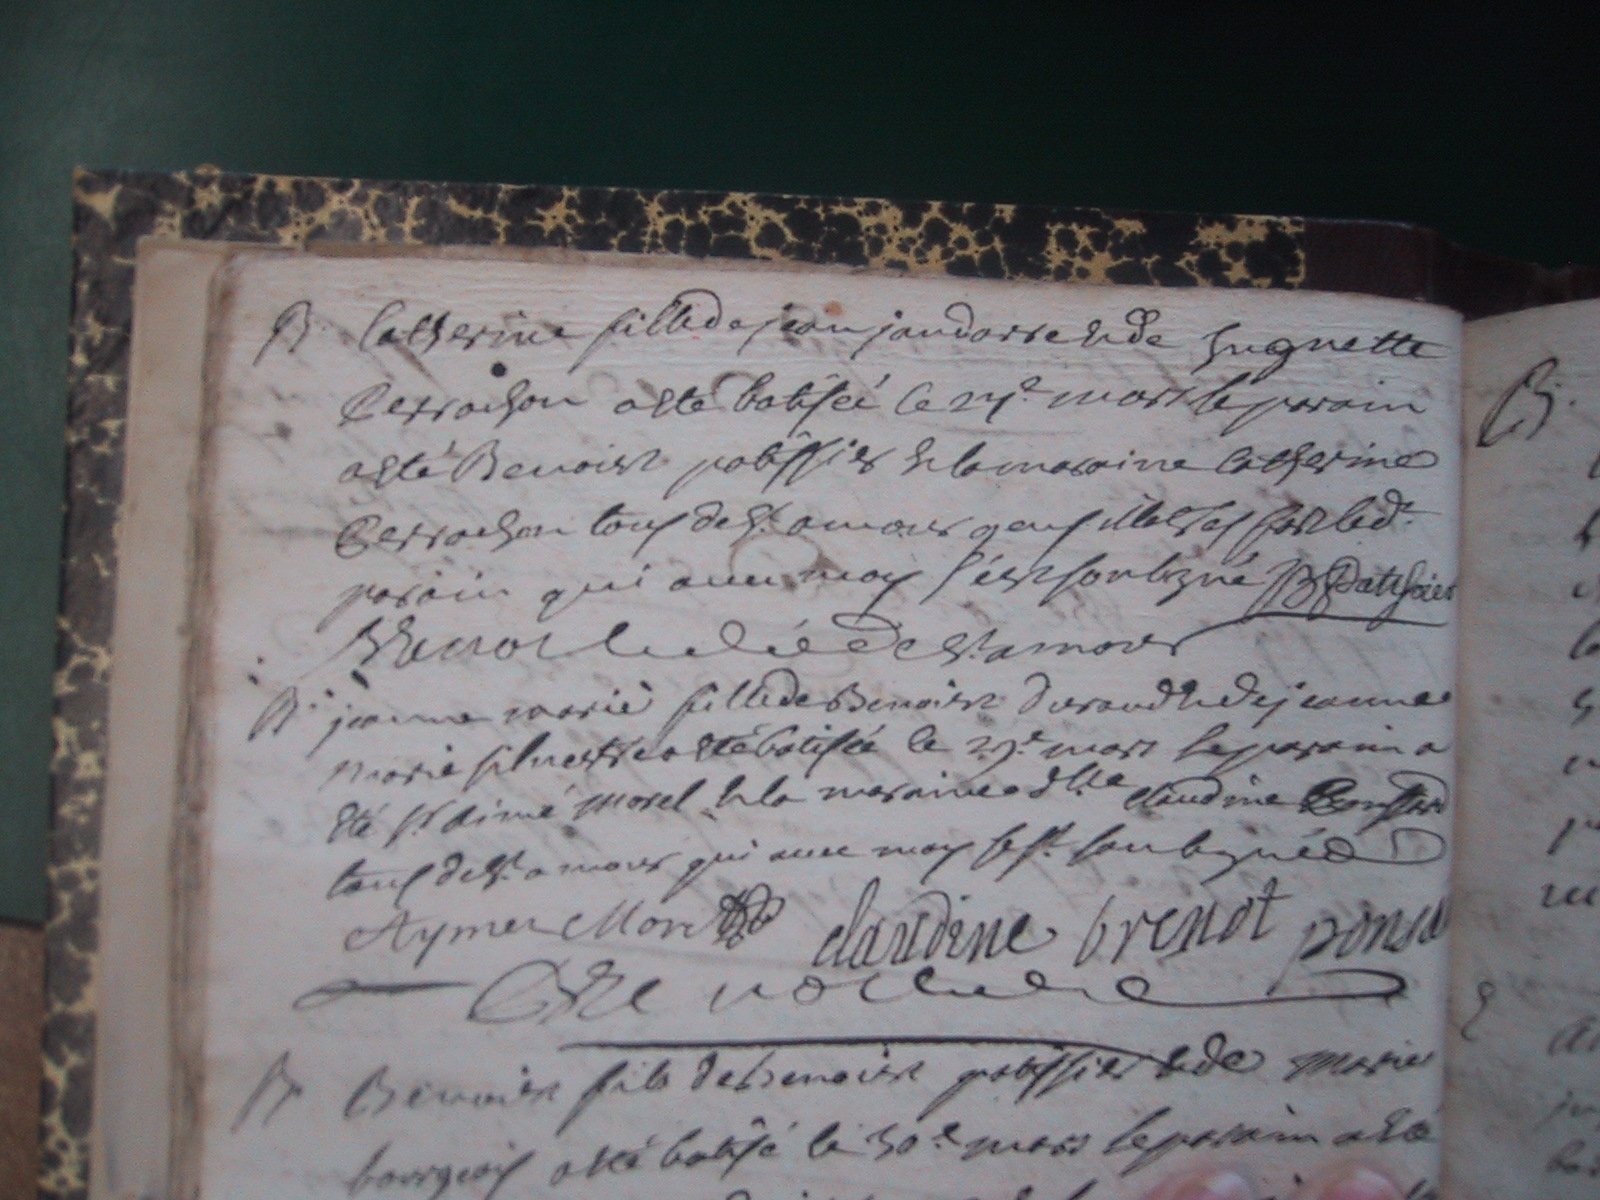 B. Catherine fille de jean jandorre et de huguette
Perrachon a este batisée le 27e mars le parain
a esté Benoist patissier et la maraine Catherine
Perrachon touts de St amour geus illetres fors led.t
parain qui avec moy s'est soubzné B Patissier
curé de St amour
B. jeanne marie fille de Benoist durand et de jeanne
marie silvestre a esté batisée le 29e mars le parain a
été Sr aimé morel et la maraine dlle claudine
touts de St amour qui avec moy se st soubznés
Aymé Morel claudine brenot ponsa
B. Benoist fils de Benoist patissier et de marie
bourgeois a esté batisé le 30e mars le parain a esté